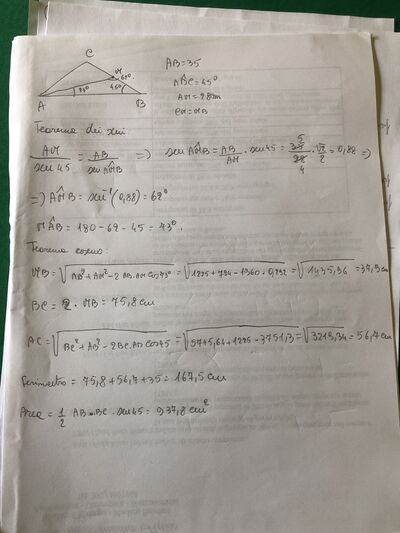 C
M
60°
45°
A
B
AB=35
AB̂C=45°
AM=28cm
CM=MB
Teorema dei seni
AM/sen 45 = AB/sen AM̂B => sen AM̂B = AB/AM · sen 45 = 35/28 · √2/2 = 0,88 =>
5
4
=> AM̂B = sen⁻¹(0,88) = 62°
MÂB = 180 - 62 - 45 = 73°
Teorema coseno
MB = √(AB² + AM² - 2AB·AM cos73°) = √(1225 + 784 - 1960 · 0,292) = √(1435,36) = 37,9cm
BC = 2 · MB = 75,8cm
AC = √(BC² + AB² - 2BC·AB cos45) = √(5745,64 + 1225 - 3751,3) = √(3219,34) = 56,7cm
Perimetro = 75,8 + 56,7 + 35 = 167,5cm
Area = 1/2 AB · BC · sen45 = 937,8cm²